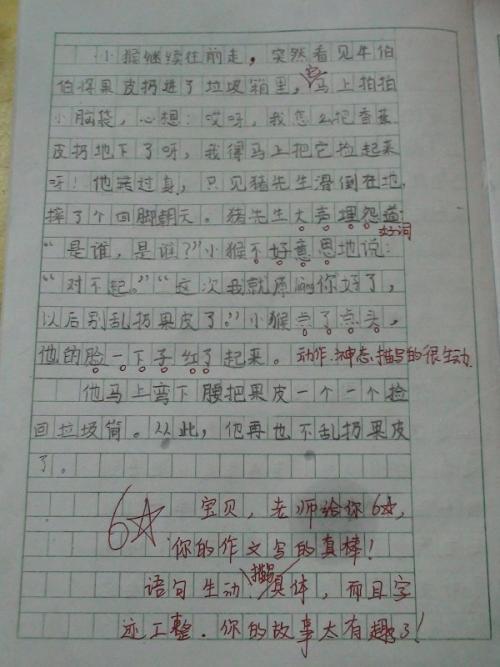 小猴继续往前走，突然看见牛伯
伯将果皮扔进了垃圾箱里，它马上拍拍
小脑袋，心想：哎呀，我怎么把香蕉
皮扔地下了呀，我得马上把它捡起来
呀！他转过身，只见猪先生滑倒在地，
摔了个四脚朝天。猪先生大声埋怨道：
好词
“是谁，是谁？”小猴不好意思地说：
“对不起。”“这次我就原谅你好了，
以后别乱扔果皮了。”小猴点了点头，
他的脸一下子红了起来。动作、神态描写的很生动
他马上弯下腰把果皮一个一个捡
回垃圾筒。从此，他再也不乱扔果皮
了。
6☆ 宝贝，老师给你6☆，
你的作文写的真棒！
语句生动、描写具体，而且字
迹工整．你的故事太有趣了！